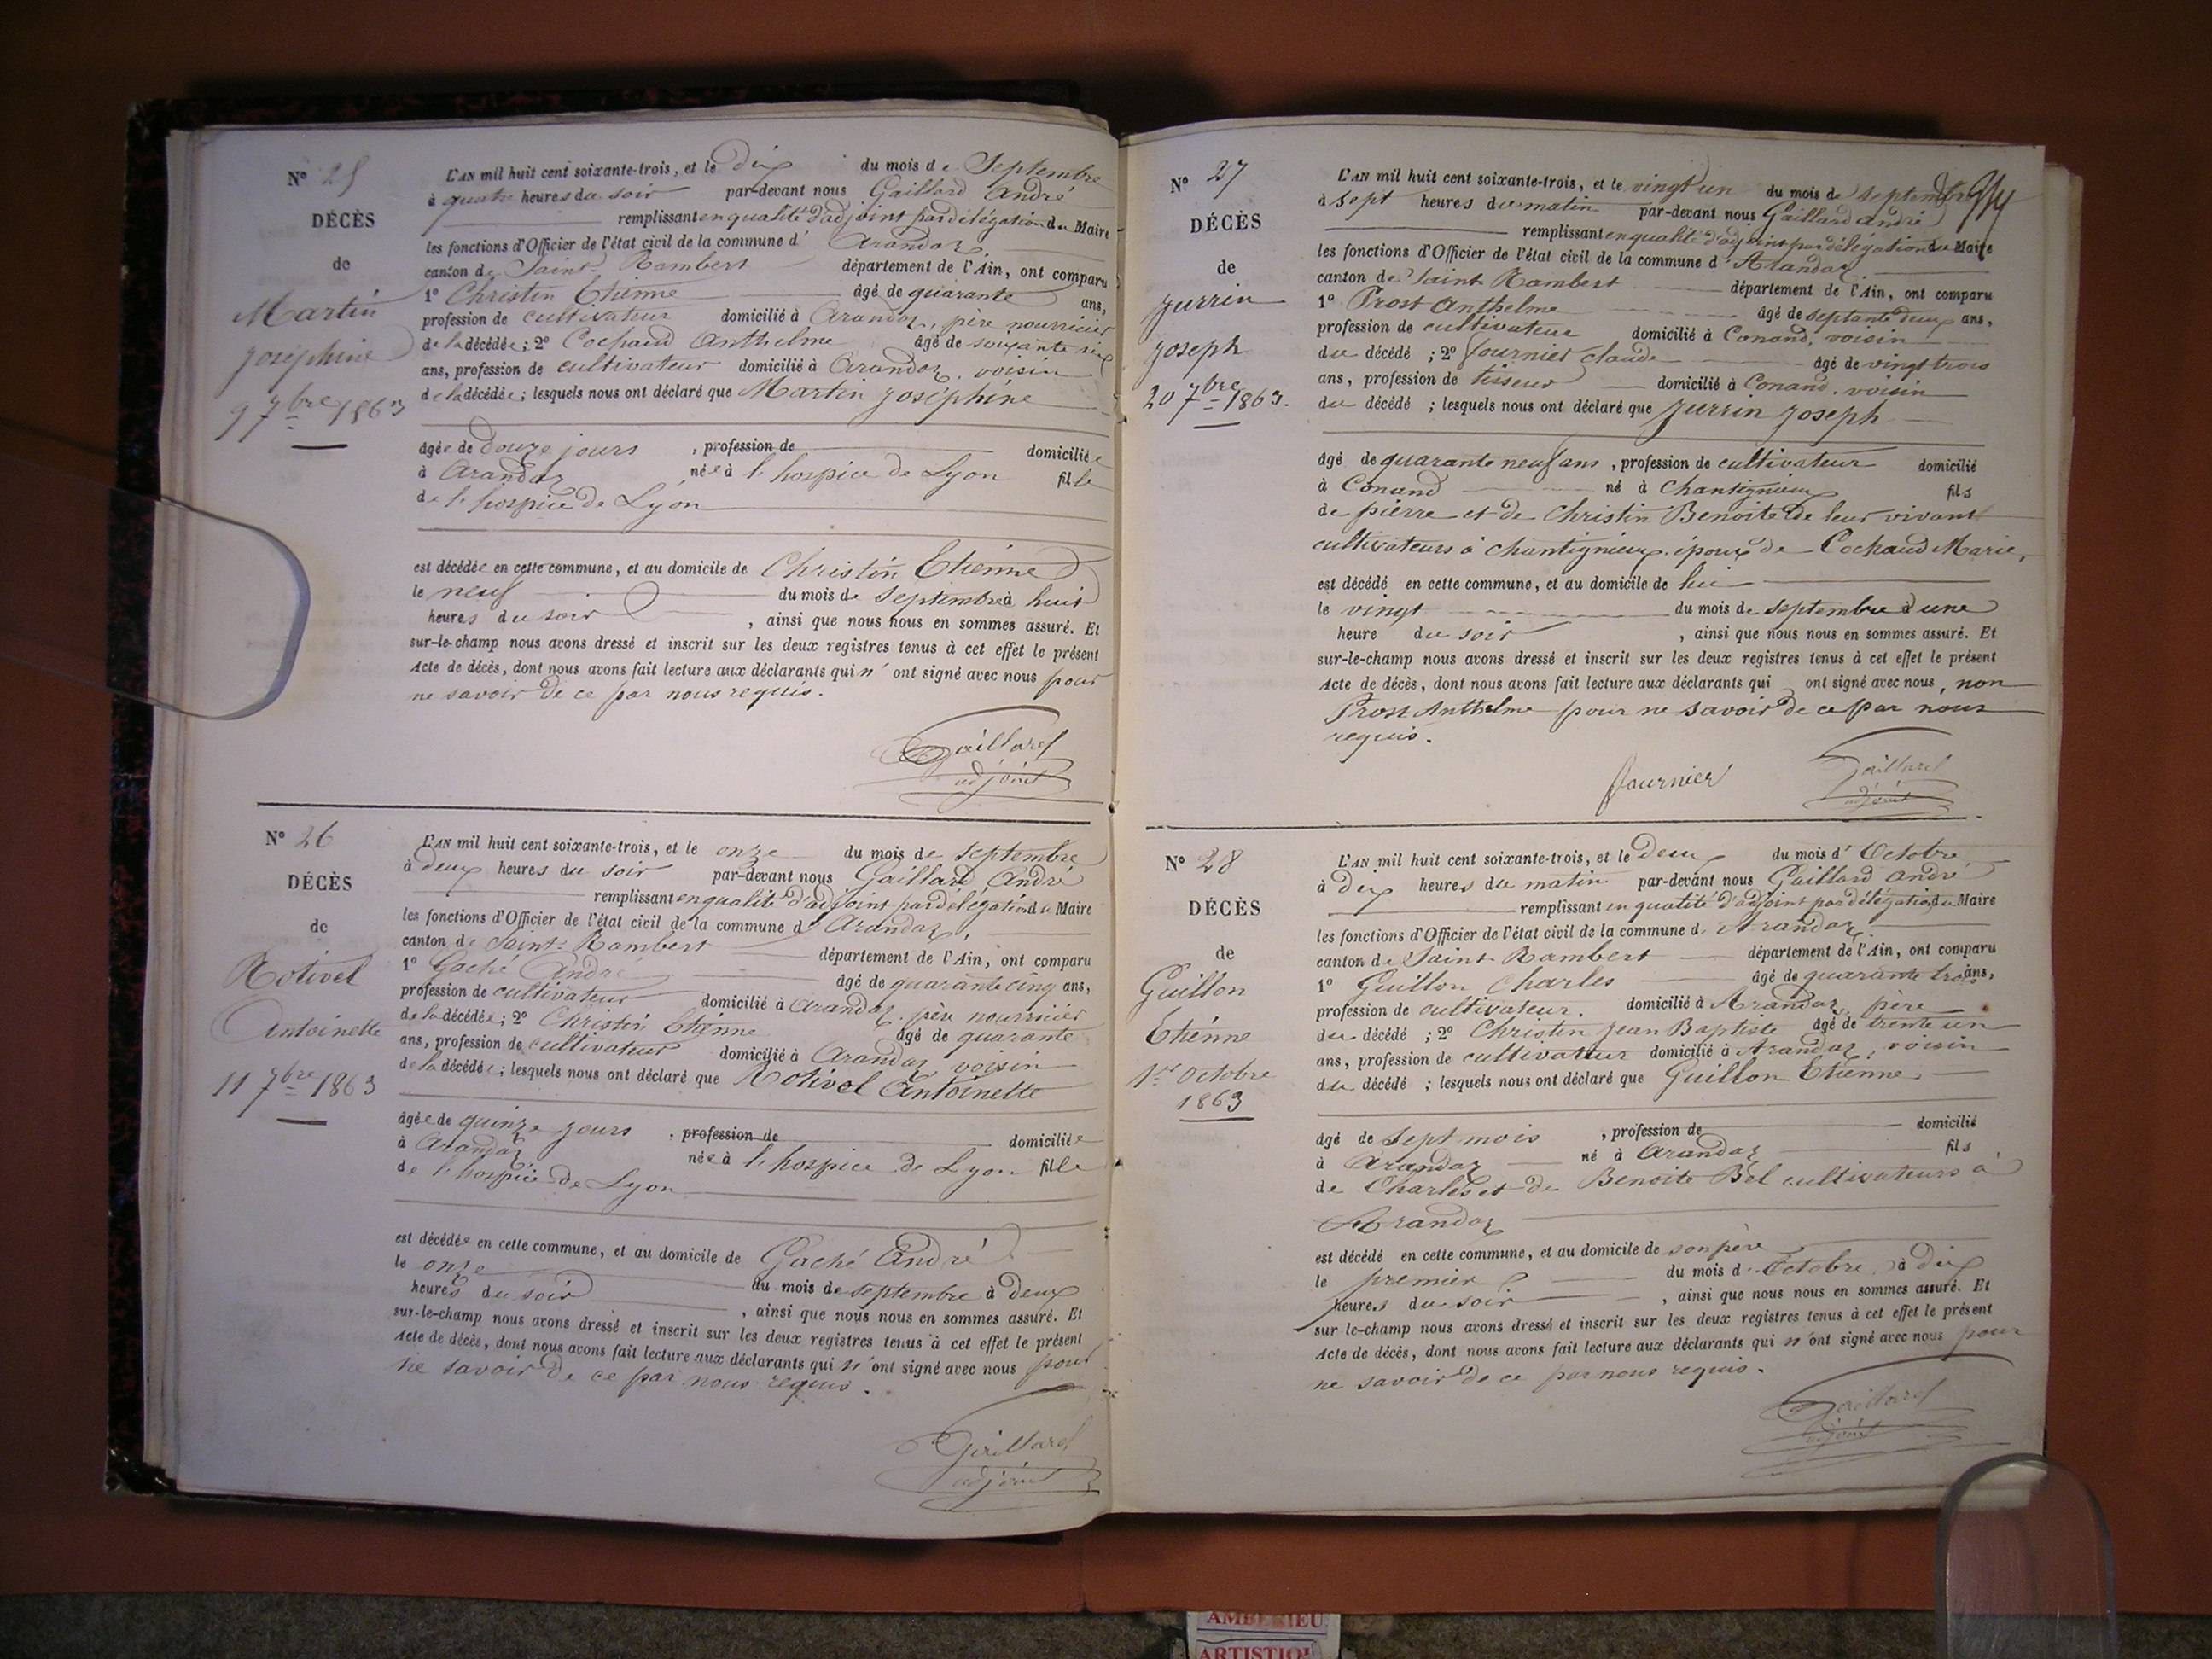 N° 25
DÉCÈS
de
Martin
Joséphine
9 7bre 1863
L'AN mil huit cent soixante-trois, et le dix du mois de Septembre
à quatre heures du soir par-devant nous Gaillard André
remplissant en qualité d'adjoint par délégation du Maire
les fonctions d'Officier de l'état civil de la commune d' Arandaz
canton de Saint-Rambert département de l'Ain, ont comparu
1° Christin Etienne âgé de quarante ans,
profession de cultivateur domicilié à Arandaz, père nourricier
de la décédée; 2° Cochaud Anthelme âgé de soixante six
ans, profession de cultivateur domicilié à Arandaz, voisin
de la décédée; lesquels nous ont déclaré que Martin Joséphine
âgée de douze jours , profession de domiciliée
à Arandaz née à l'hospice de Lyon fille
de l'hospice de Lyon
est décédée en cette commune, et au domicile de Christin Etienne
le neuf du mois de Septembre à huit
heures du soir , ainsi que nous nous en sommes assuré. Et
sur-le-champ nous avons dressé et inscrit sur les deux registres tenus à cet effet le présent
Acte de décès, dont nous avons fait lecture aux déclarants qui n'ont signé avec nous pour
ne savoir de ce par nous requis.
Gaillard
adjoint
N° 26
DÉCÈS
de
Rotivel
Antoinette
11 7bre 1863
L'AN mil huit cent soixante-trois, et le onze du mois de Septembre
à deux heures du soir par-devant nous Gaillard André
remplissant en qualité d'adjoint par délégation du Maire
les fonctions d'Officier de l'état civil de la commune d' Arandaz,
canton de Saint-Rambert département de l'Ain, ont comparu
1° Gaché André âgé de quarante cinq ans,
profession de cultivateur domicilié à Arandaz, père nourricier
de la décédée; 2° Christin Etienne âgé de quarante
ans, profession de cultivateur domicilié à Arandaz voisin
de la décédée; lesquels nous ont déclaré que Rotivel Antoinette
âgée de quinze jours , profession de domiciliée
à Arandaz née à l'hospice de Lyon fille
de l'hospice de Lyon
est décédée en cette commune, et au domicile de Gaché André
le onze du mois de septembre à deux
heures du soir , ainsi que nous nous en sommes assuré. Et
sur-le-champ nous avons dressé et inscrit sur les deux registres tenus à cet effet le présent
Acte de décès, dont nous avons fait lecture aux déclarants qui n'ont signé avec nous pour
ne savoir de ce par nous requis.
Gaillard
adjoint
N° 27
DÉCÈS
de
Jurrin
Joseph
20 7bre 1863.
L'AN mil huit cent soixante-trois, et le vingt un du mois de septembre
à sept heures du matin par-devant nous Gaillard André
remplissant en qualité d'adjoint par délégation du Maire
les fonctions d'Officier de l'état civil de la commune d' Arandaz
canton de Saint Rambert département de l'Ain, ont comparu
1° Prost Anthelme âgé de septante deux ans,
profession de cultivateur domicilié à Conand, voisin
du décédé ; 2° fournier claude âgé de vingt trois
ans, profession de tisseur domicilié à Conand. voisin
du décédé ; lesquels nous ont déclaré que Jurrin Joseph
âgé de quarante neuf ans , profession de cultivateur domicilié
à Conand né à Chantignieux fils
de pierre et de Christin Benoite de leur vivant
cultivateurs à chantignieux. époux de Cochaud Marie,
est décédé en cette commune, et au domicile de lui
le vingt du mois de septembre à une
heure du soir , ainsi que nous nous en sommes assuré. Et
sur-le-champ nous avons dressé et inscrit sur les deux registres tenus à cet effet le présent
Acte de décès, dont nous avons fait lecture aux déclarants qui ont signé avec nous, non
Prost Anthelme pour ne savoir de ce par nous
requis.
fournier
Gaillard
adjoint
N° 28
DÉCÈS
de
Guillon
Etiénne
1er Octobre
1863
L'AN mil huit cent soixante-trois, et le Deux du mois d' Octobre
à Dix heures du matin par-devant nous Gaillard André
remplissant en qualité d'adjoint par délégation du Maire
les fonctions d'Officier de l'état civil de la commune d. Arandaz
canton de Saint-Rambert département de l'Ain, ont comparu
1° Guillon Charles âgé de quarante trois ans,
profession de cultivateur. domicilié à Arandaz, père
du décédé ; 2° Christin Jean Baptiste âgé de trente un
ans, profession de cultivateur domicilié à Arandaz, voisin
du décédé ; lesquels nous ont déclaré que Guillon Etienne.
âgé de sept mois , profession de domicilié
à Arandaz né à Arandaz fils
de Charles et de Benoite Bel cultivateurs à
Arandaz
est décédé en cette commune, et au domicile de son père
le premier du mois d' Octobre à dix
heures du soir , ainsi que nous nous en sommes assuré. Et
sur le-champ nous avons dressé et inscrit sur les deux registres tenus à cet effet le présent
Acte de décès, dont nous avons fait lecture aux déclarants qui n'ont signé avec nous pour
ne savoir de ce par nous requis.
Gaillard
adjoint
AMBERIEU
ARTISTIQU